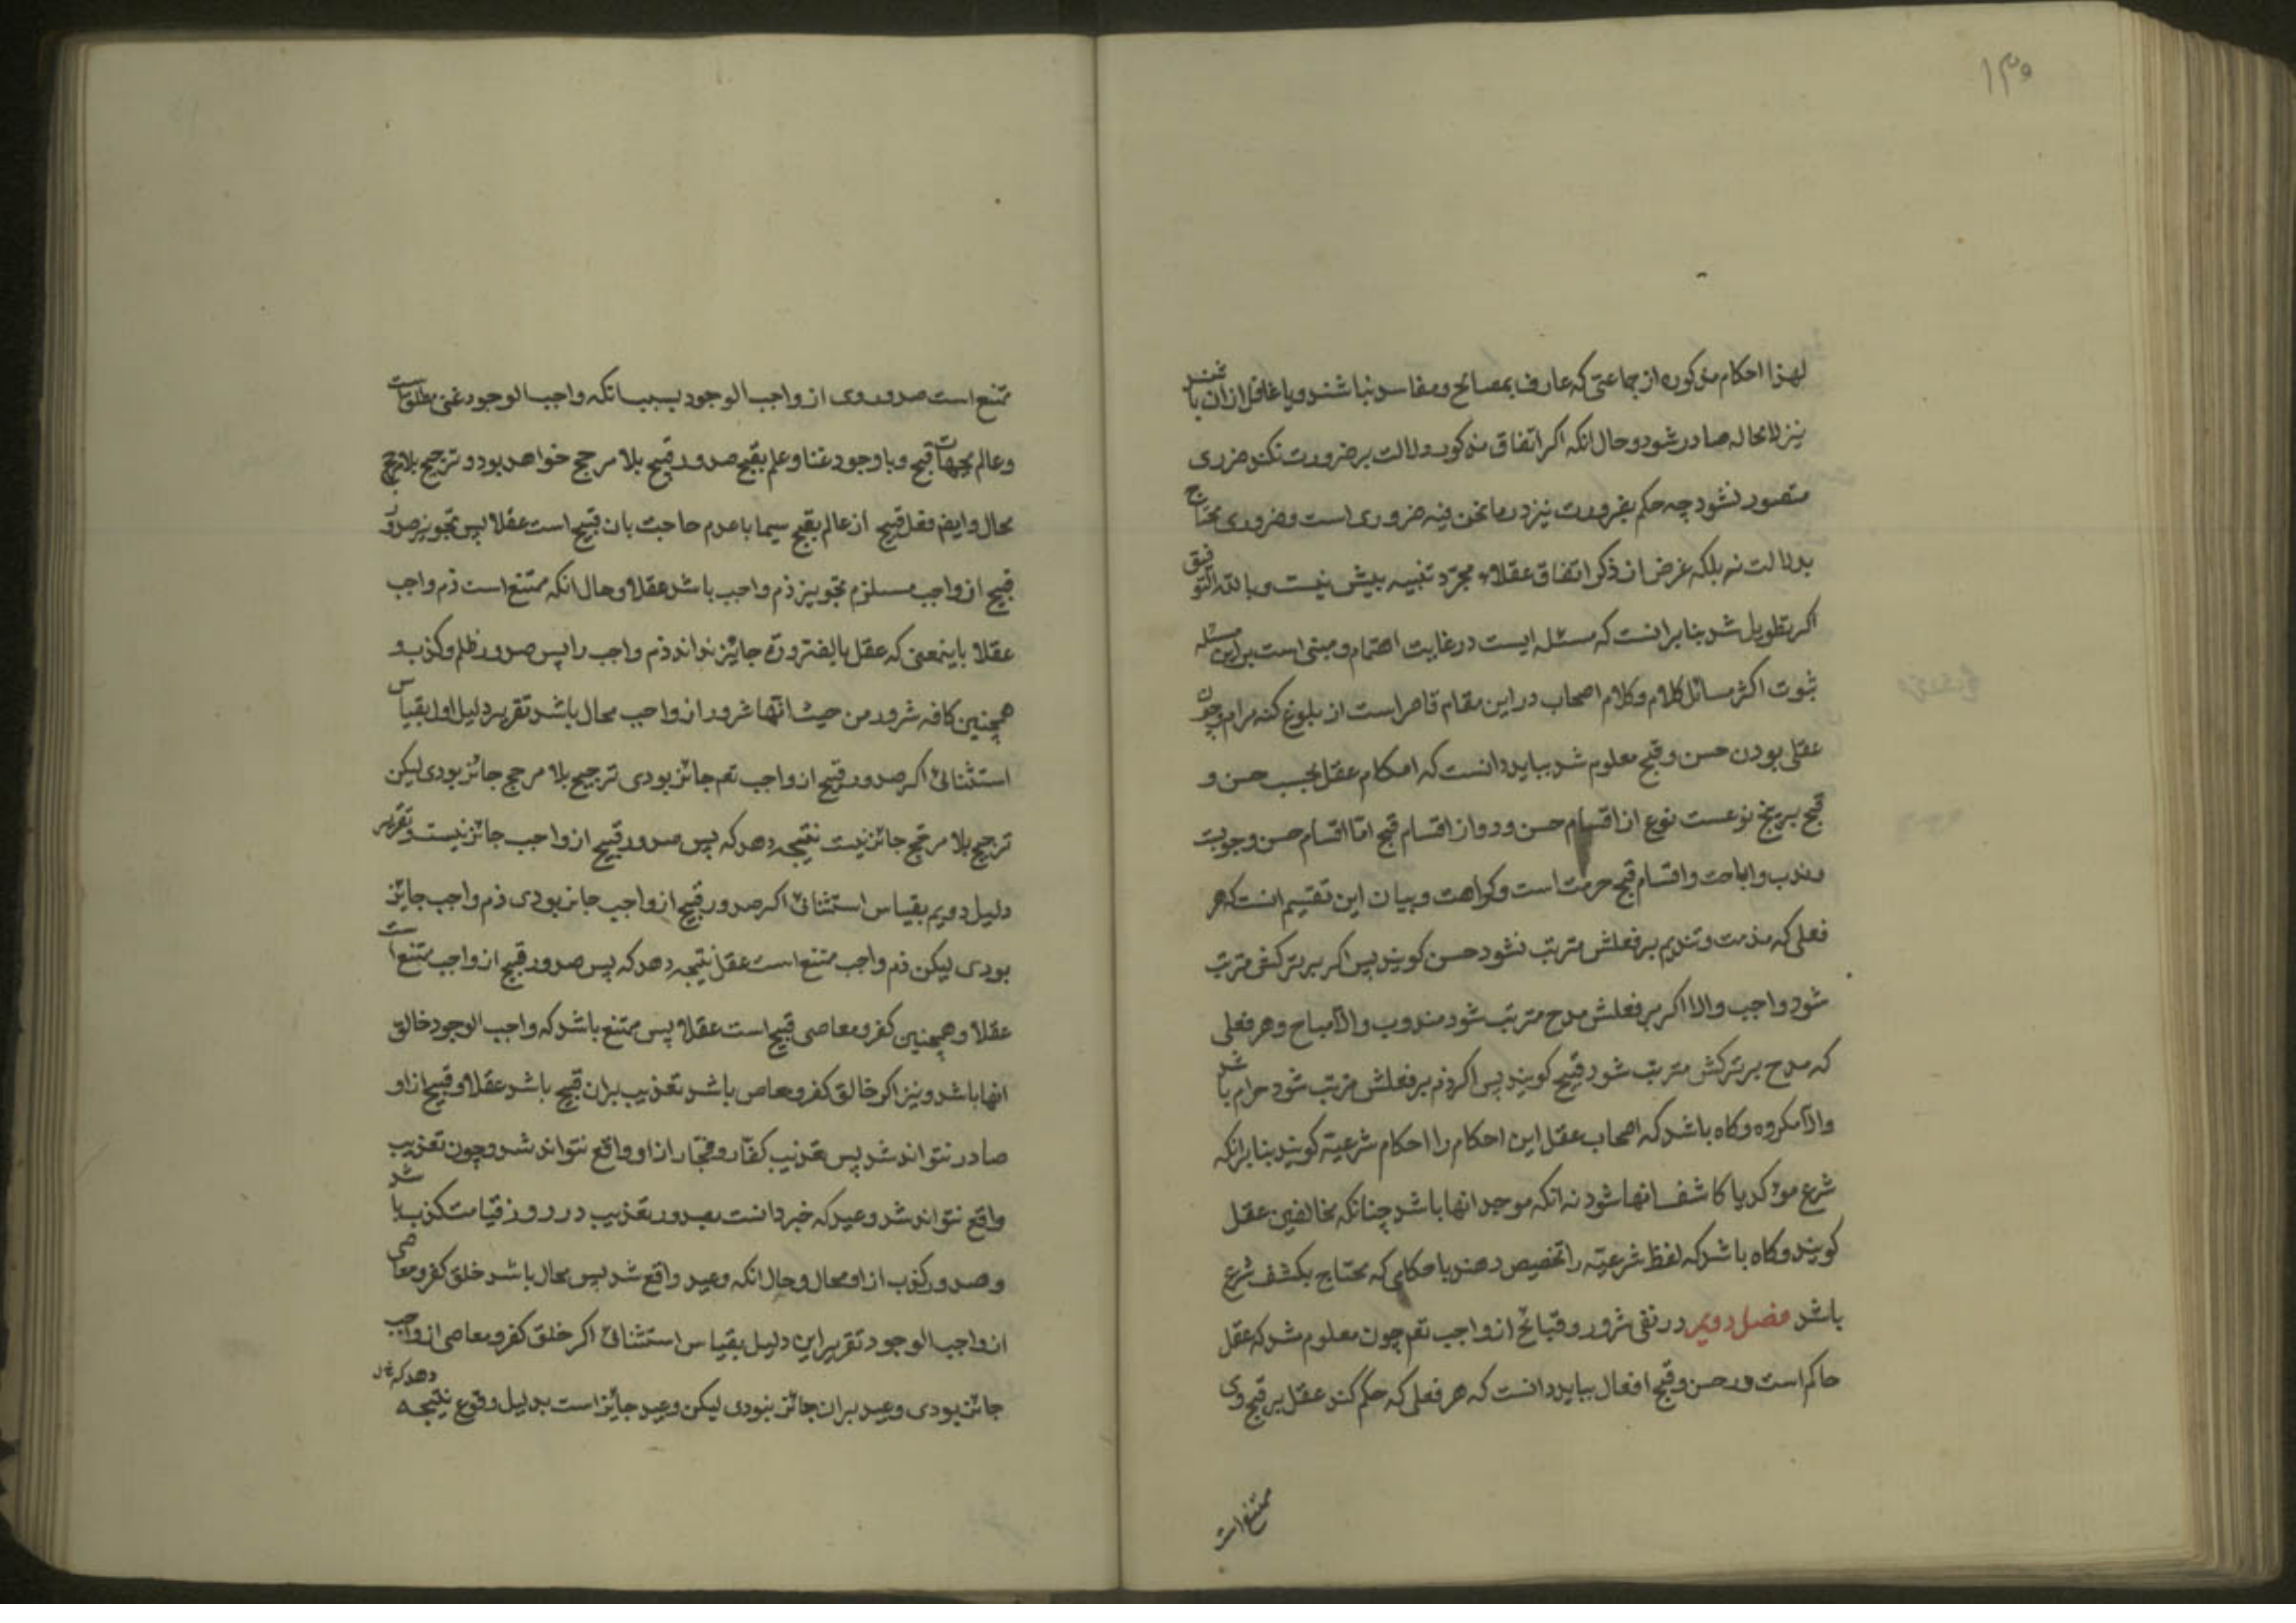 ۱۳۰
لهذا احکام مذکوره از جماعتی که عارف بمصالح و مفاسد نباشند و یا غافل ازان باشند
نیز لامحاله صادر شود و حال انکه اکر اتفاق مذکور دلالت بر ضرورت نکند ضرری
متصور نشود چه حکم بضرورت نیز در ما نحن فیه ضروری است و ضروری محتاج
بدلالت نه بلکه غرض از ذکر اتفاق عقلاء مجرّد تنبیه بیش نیست و بالله التوفیق
اکر تطویل شد بنا برانست که مسئله ایست در غایت اهتمام و مبنی است براین مسئله
ثبوت اکثر مسائل کلام و کلام اصحاب در این مقام قاصر است از بلوغ کنه مرام و چون
عقلی بودن حسن و قبح معلوم شد بباید دانست که احکام عقل بحسب حسن و
قبح بر پنج نوعست نوع از اقسام حسن و دو از اقسام قبح امّا اقسام حسن وجوبت
و ندب و اباحت و اقسام قبح حرمت است و کراهت و بیان این تقسیم انست که هر
فعلی که مذمت و تندیم بر فعلش مترتب نشود حسن کویند پس اکر بر ترکش مترتب
شود واجب و الا اکر بر فعلش مدح مترتب شود مندوب و الّا مباح و هر فعلی
که مدح بر ترکش مترتب شود قبیح کویند پس اکر ذم بر فعلش مرتب شود حرام باشد
و الّا مکروه و کاه باشد که اصحاب عقل این احکام را احکام شرعیّة کویند بنا برانکه
شرع مؤکد یا کاشف انها شود نه انکه موجد انها باشد چنانکه مخالفین عقل
کویند و کاه باشد که لفظ شرعیّه را تخصیص دهند باحکامی که محتاج بکشف شرع
باشد فصل دویم در نفی شرور و قبائح از واجب تعم چون معلوم شد که عقل
حاکم است در حسن و قبح افعال بباید دانست که هر فعلی که حکم کند عقل بر قبح وی
ممتنع است
ممتنع است صدور وی از واجب الوجود بسبب انکه واجب الوجود غنی مطلق است
و عالم بجهات قبح و با وجود غنا و علم بقبح صدور قبیح بلا مرجح خواهد بود و ترجیح بلا مرجح
محال و ایضا فعل قبیح از عالم بقبح سیما با عدم حاجت بان قبیح است عقلا پس تجویز صدور
قبیح از واجب مستلزم تجویز ذم واجب باشد عقلا و حال انکه ممتنع است ذم واجب
عقلا باینمعنی که عقل بالضرورة جایز نداند ذم واجب را پس صدور ظلم و کذب و
همچنین کافه شرور من حیث انّها شرور از واجب محال باشد تقریر دلیل اول بقیاس
استثنائی اکر صدور قبیح از واجب تعم جائز بودی ترجیح بلا مرجح جائز بودی لیکن
ترجیح بلا مرجّح جائز نیست نتیجه دهد که پس صدور قبیح از واجب جائز نیست و تقریر
دلیل دویم بقیاس استثنائی اکر صدور قبیح از واجب جایز بودی ذم واجب جایز
بودی لیکن ذم واجب ممتنع است عقل نتیجه دهد که پس صدور قبیح از واجب ممتنع است
عقلا و همچنین کفر و معاصی قبیح است عقلا پس ممتنع باشد که واجب الوجود خالق
انها باشد و نیز اکر خالق کفر و معاصی باشد تعذیب بران قبیح باشد عقلا و قبیح از او
صادر نتواند شد پس تعذیب کفّار و فجّار از او واقع نتواند شد و چون تعذیب
واقع نتواند شد وعید که خبر دانست بصدور تعذیب در روز قیامت کذب باشد
و صدور کذب از او محال و حال انکه وعید واقع شد پس محال باشد خلق کفر و معاصی
از واجب الوجود تقریر این دلیل بقیاس استثنائی اکر خلق کفر و معاصی از واجب
جائز بودی وعید بران جائز نبودی لیکن وعید جایز است بدلیل وقوع نتیجه دهد که